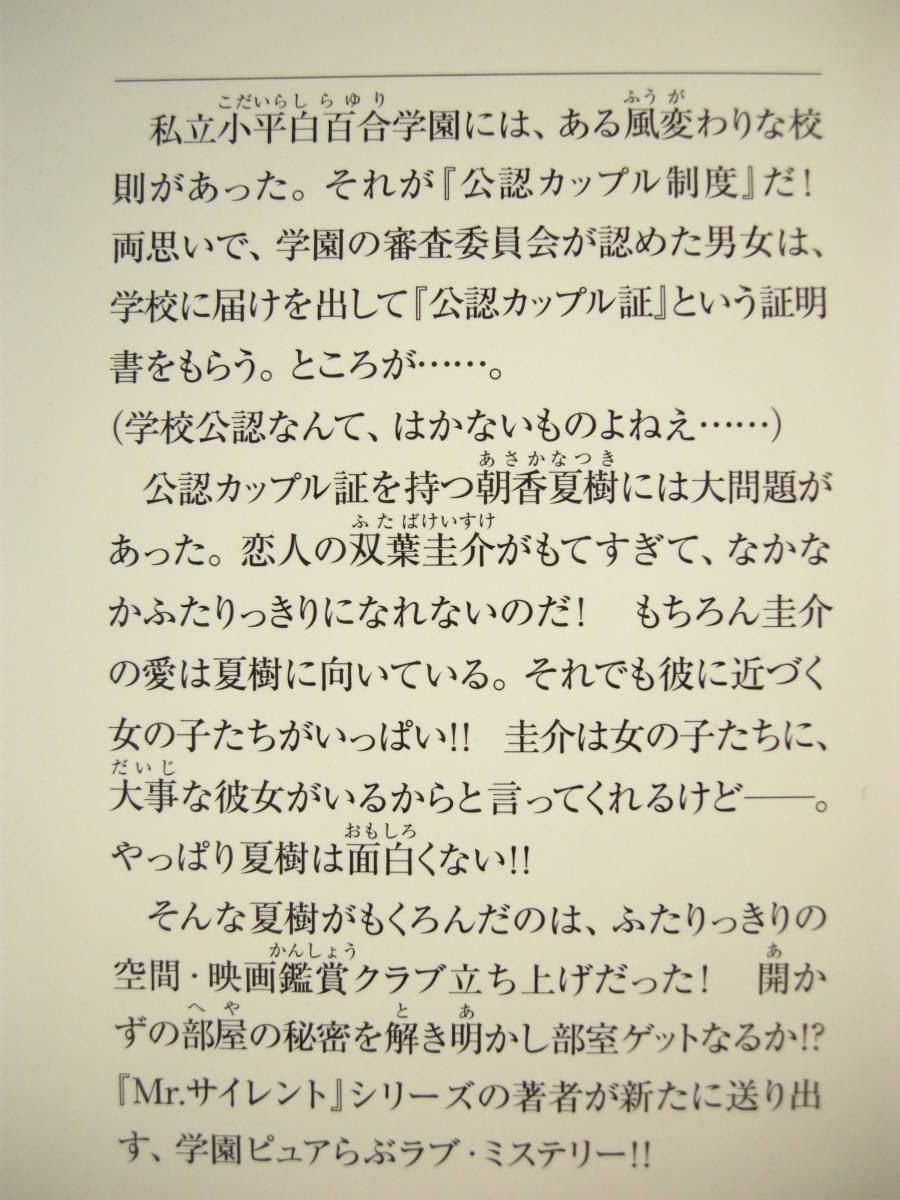 こだいらしらゆり　ふうが
私立小平白百合学園には、ある風変わりな校
則があった。それが『公認カップル制度』だ！
両思いで、学園の審査委員会が認めた男女は、
学校に届けを出して『公認カップル証』という証明
書をもらう。ところが……。
(学校公認なんて、はかないものよねえ……)
あさかなつき
公認カップル証を持つ朝香夏樹には大問題が
ふたばけいすけ
あった。恋人の双葉圭介がもてすぎて、なかな
かふたりっきりになれないのだ！　もちろん圭介
の愛は夏樹に向いている。それでも彼に近づく
女の子たちがいっぱい!!　圭介は女の子たちに、
だいじ
大事な彼女がいるからと言ってくれるけど――。
おもしろ
やっぱり夏樹は面白くない!!
そんな夏樹がもくろんだのは、ふたりっきりの
かんしょう　あ
空間・映画鑑賞クラブ立ち上げだった！　開か
へや　と　あ
ずの部屋の秘密を解き明かし部室ゲットなるか!?
『Mr.サイレント』シリーズの著者が新たに送り出
す、学園ピュアらぶラブ・ミステリー!!